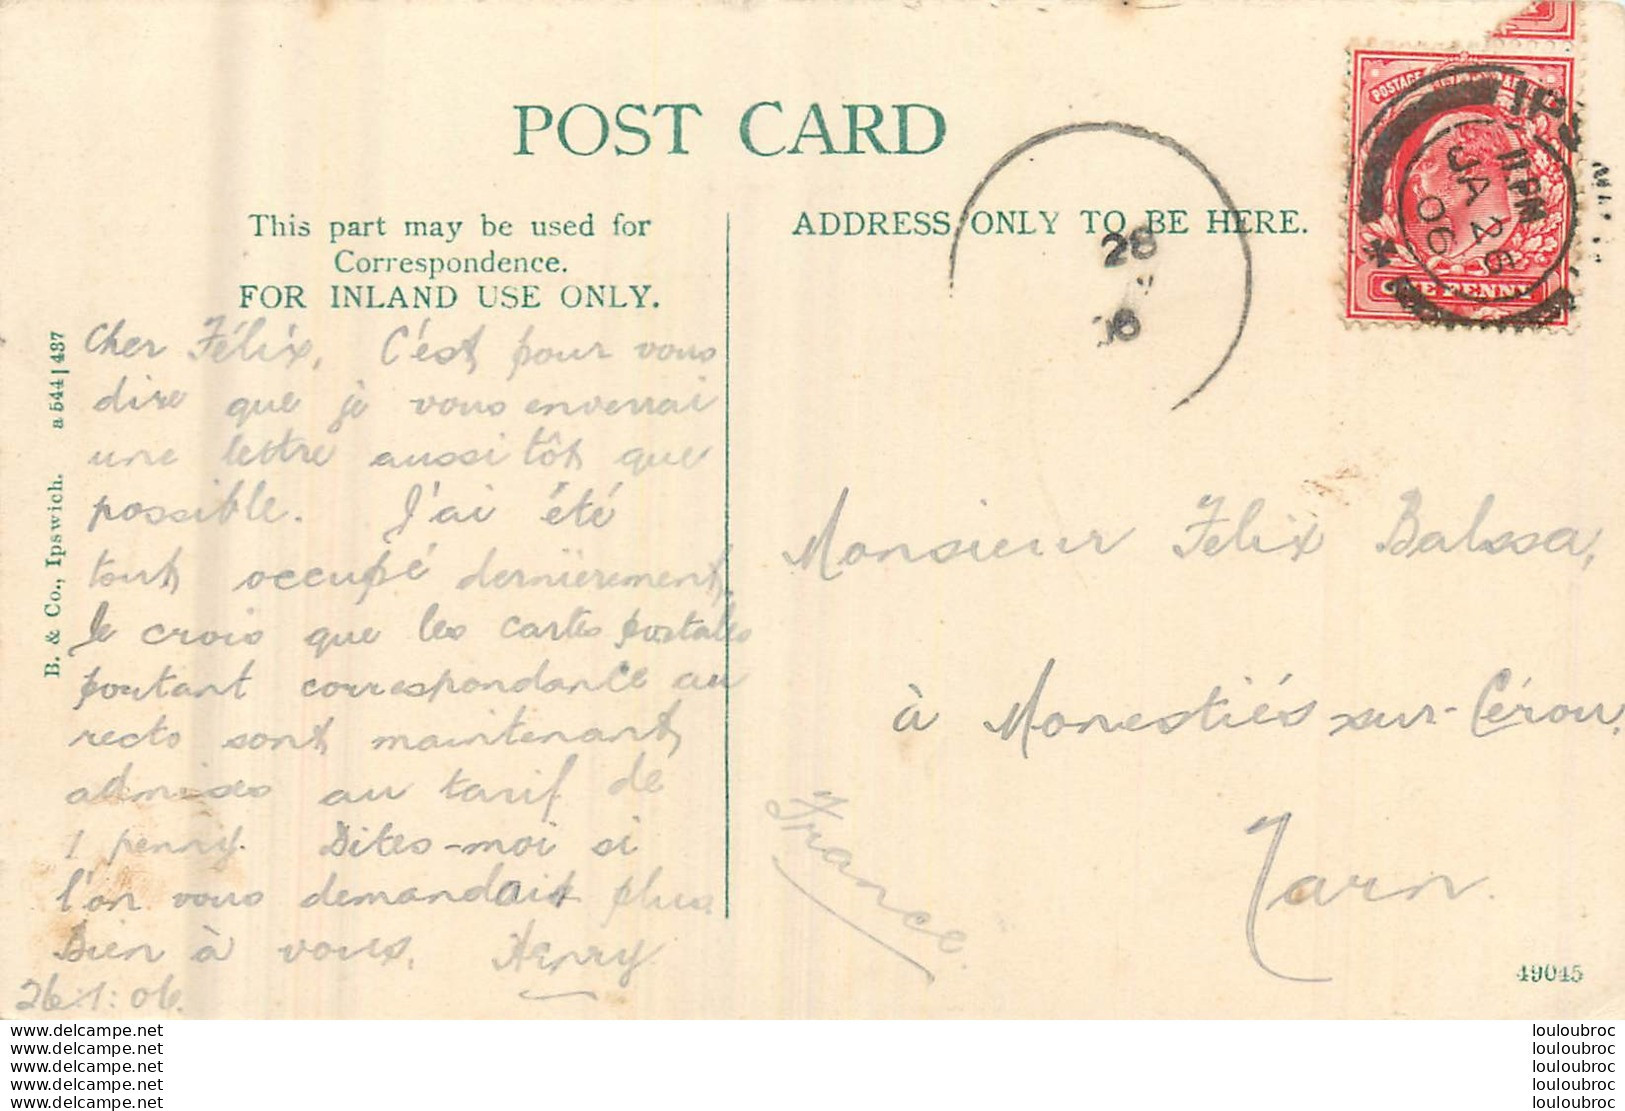 POST CARD
This part may be used for
Correspondence.
FOR INLAND USE ONLY.
ADDRESS ONLY TO BE HERE.
POSTAGE
ONE PENNY
IPS
11.PM
JA 26
06
28
06
B. & Co., Ipswich. a 544 | 437
Cher Félix, C'est pour vous
dire que je vous enverrai
une lettre aussitôt que
possible. J'ai été
tout occupé dernièrement,
Je crois que les cartes postales
portant correspondance au
recto sont maintenant
admises au tarif de
1 penny. Dites-moi si
l'on vous demandait plus
Bien à vous, Henry
26:1:06.
Monsieur Félix Balssa,
à Monestiés-sur-Cérou,
Tarn.
France.
49045
www.delcampe.net louloubroc
www.delcampe.net louloubroc
www.delcampe.net louloubroc
www.delcampe.net louloubroc
www.delcampe.net louloubroc